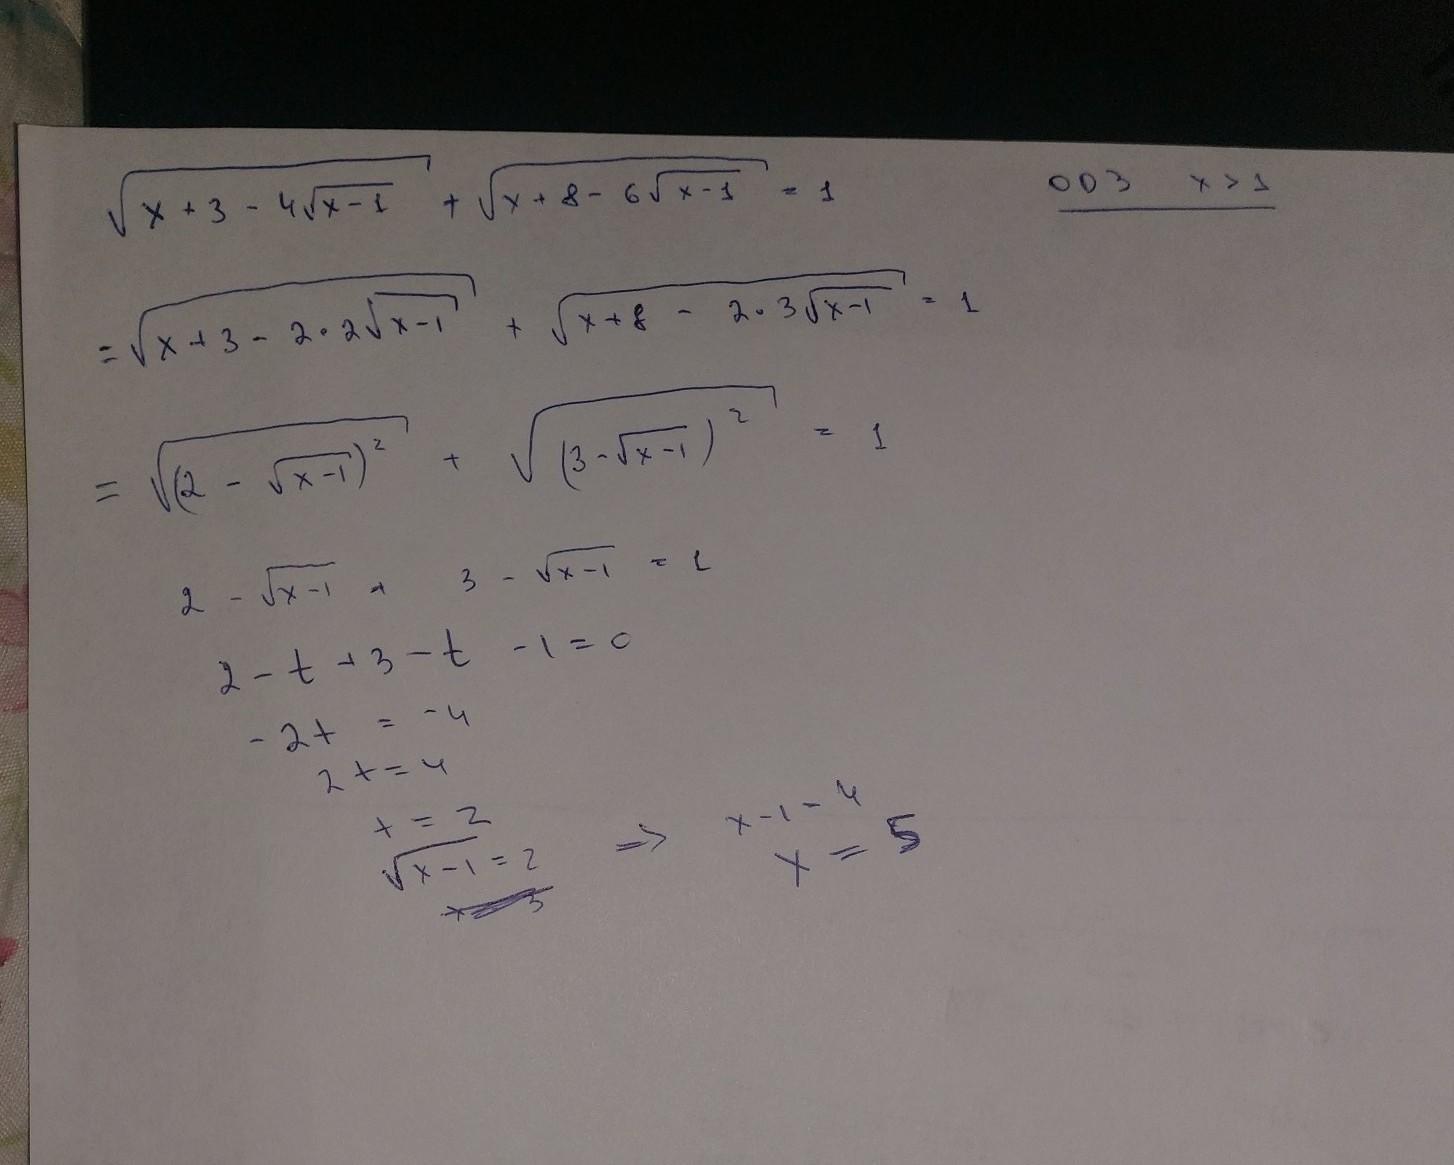 √(x + 3 - 4√(x-1)) + √(x + 8 - 6√(x-1)) = 1 ОДЗ x > 1
= √(x + 3 - 2·2√(x-1)) + √(x+8 - 2·3√(x-1)) = 1
= √((2 - √(x-1))²) + √((3-√(x-1))²) = 1
2 - √(x-1) + 3 - √(x-1) = 1
2 - t + 3 - t - 1 = 0
-2t = -4
2t = 4
t = 2
√(x-1) = 2 => x - 1 = 4
x = 5